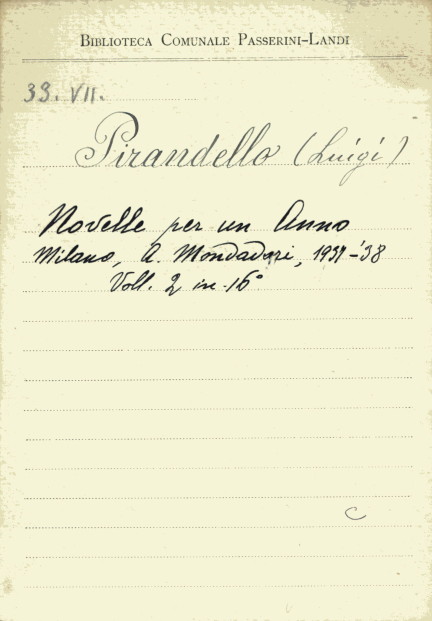 BIBLIOTECA COMUNALE PASSERINI-LANDI
33. VII.
Pirandello (Luigi)
Novelle per un Anno
Milano, A. Mondadori, 1937-'38
Voll. 2 in-16°
C